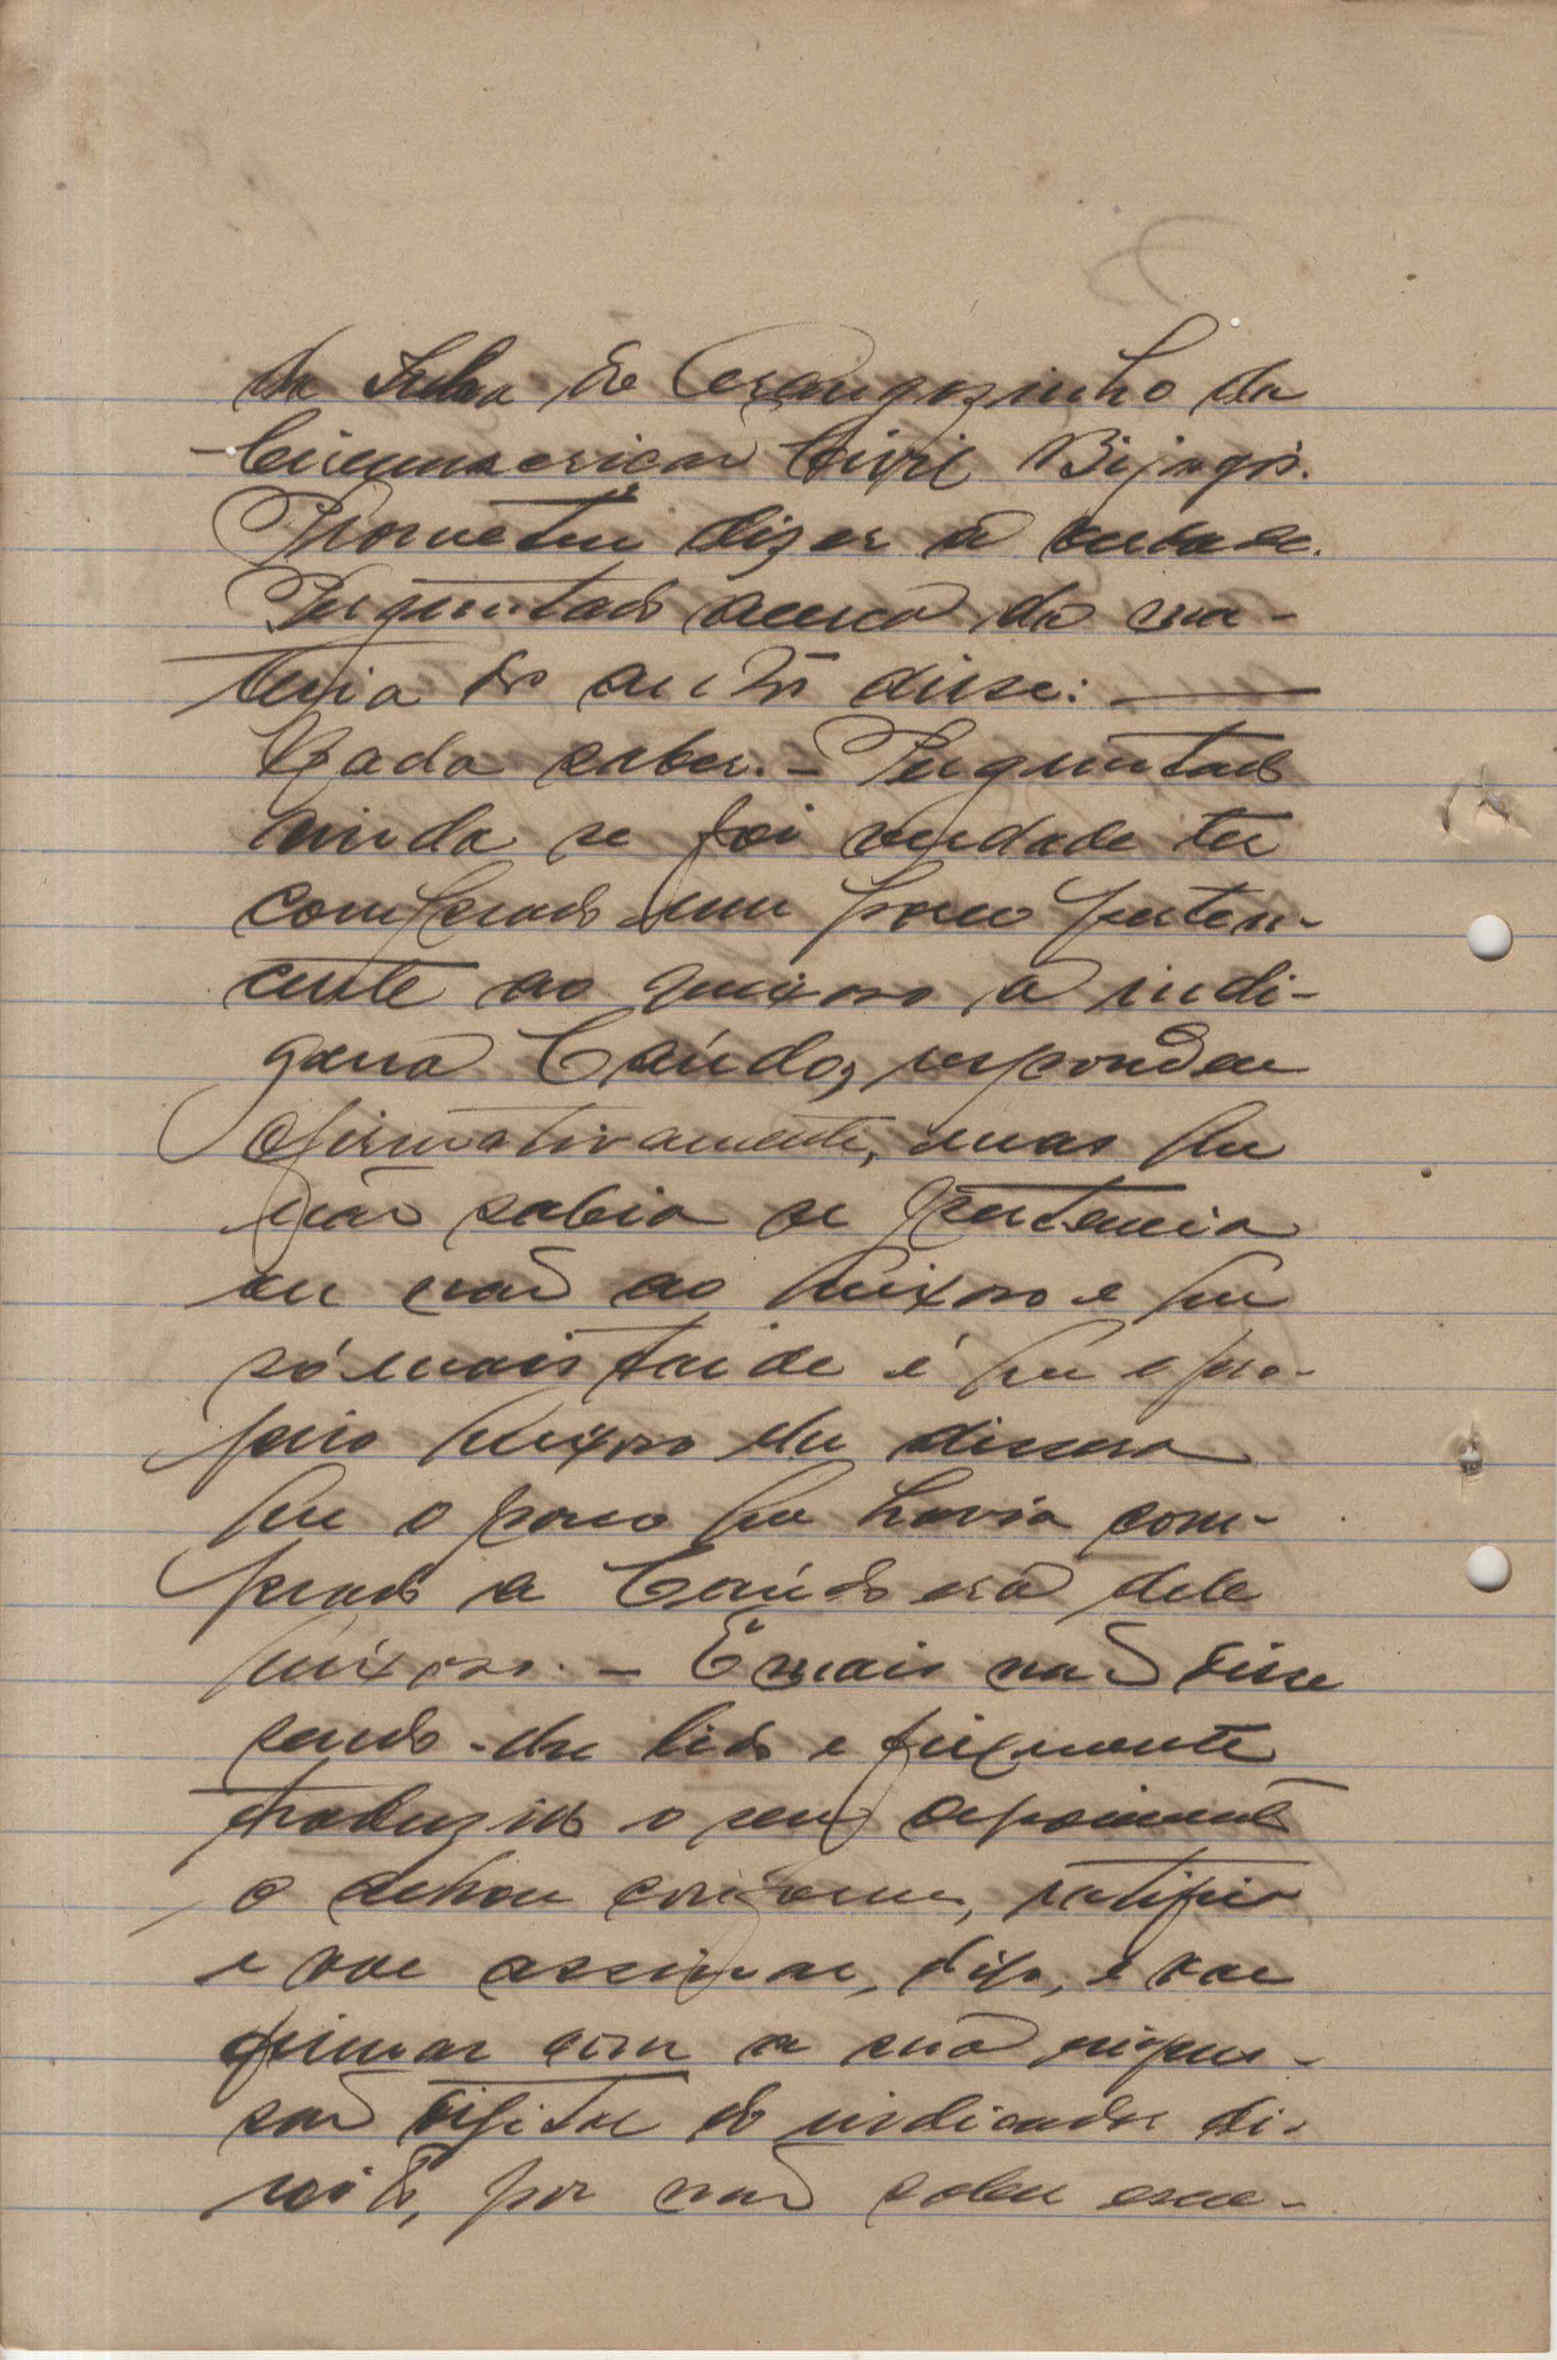 da Ilha de Orangozinho da
Circunscrição Civil Bijagós.
Prometeu dizer a verdade.
Perguntado acerca da ma-
teria do auto disse:
Nada saber. - Perguntado
ainda se foi verdade ter
comprado um porco perten-
cente ao queixoso a indi-
gena Caúdo, respondeu
afirmativamente, mas que
não sabia se pertencia
ou não ao queixoso e que
só mais tarde é que o pro-
prio queixoso lhe dissera
que o porco que havia com-
prado a Caúdo era dele
queixoso. - E mais não disse
sendo-lhe lido e fielmente
traduzido o seu depoimento
o achou conforme, ratifica
e vae assinar, digo, e vae
firmar com a sua impres-
são digital do indicador di-
reito, por não saber escre-